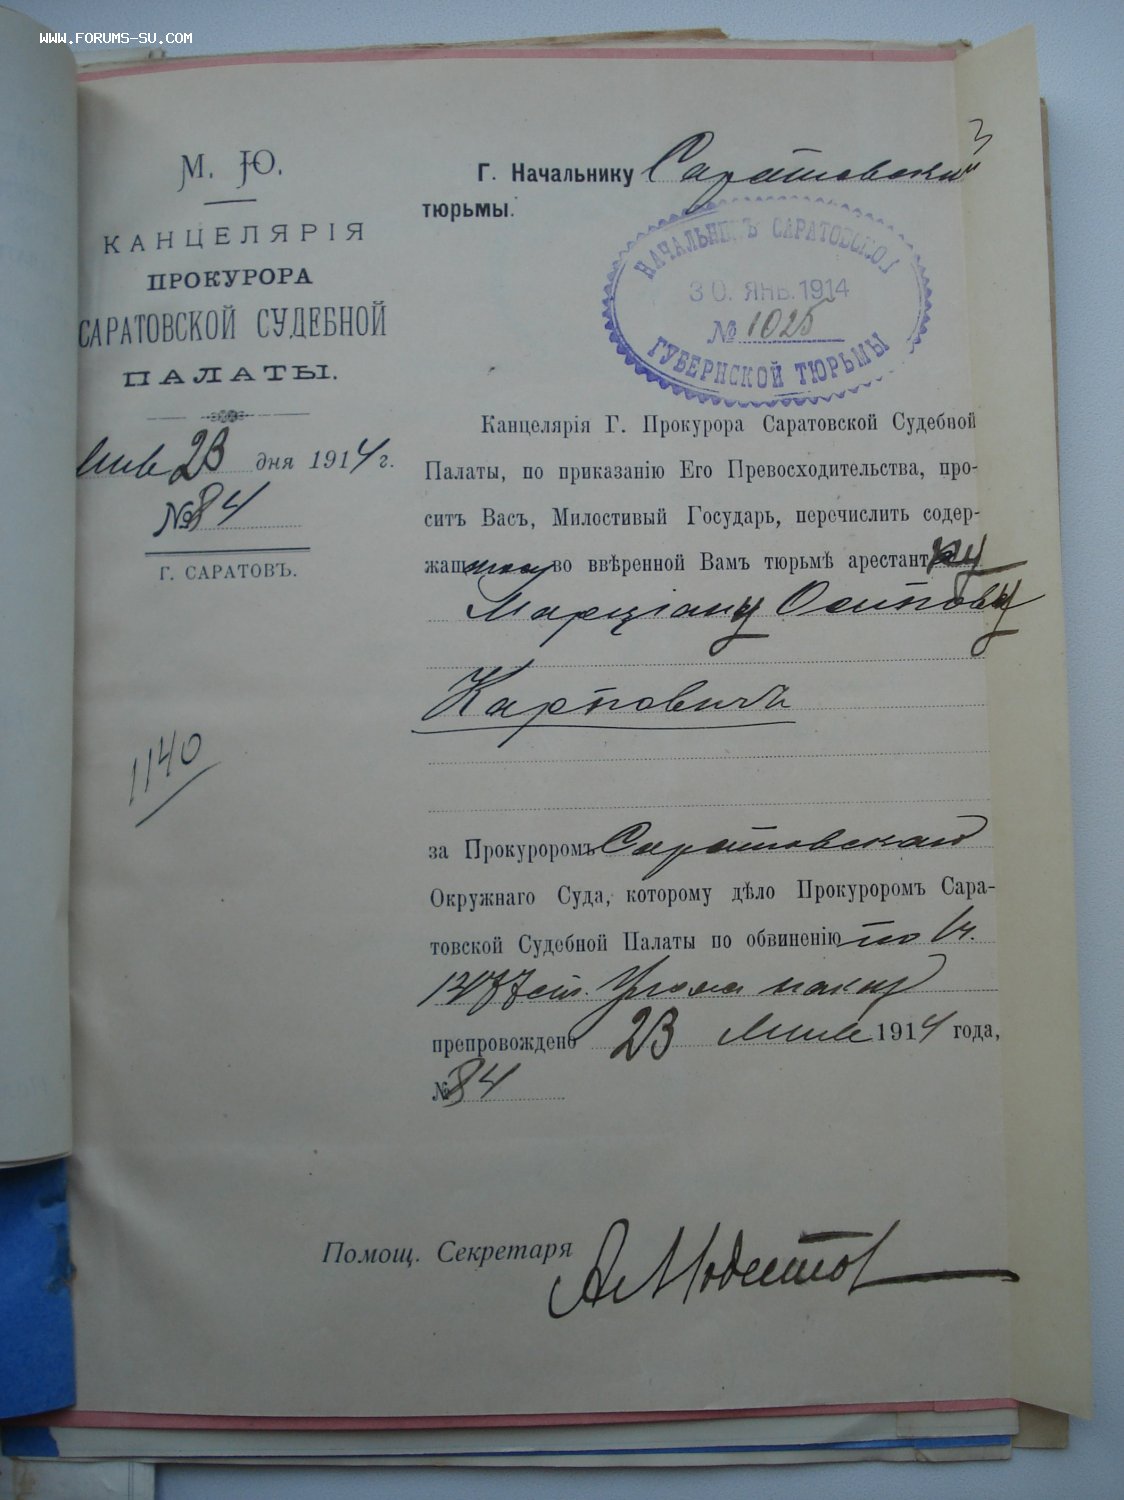 WWW.FORUMS-SU.COM
М. Ю.
КАНЦЕЛЯРІЯ
ПРОКУРОРА
САРАТОВСКОЙ СУДЕБНОЙ
ПАЛАТЫ.
Янв 23 дня 1914 г.
№ 84
Г. САРАТОВЪ.
1140
3
Г. Начальнику Саратовской
тюрьмы.
НАЧАЛЬНИКЪ САРАТОВСКОЙ
30. ЯНВ. 1914
№ 1025
ГУБЕРНСКОЙ ТЮРЬМЫ
Канцелярія Г. Прокурора Саратовской Судебной
Палаты, по приказанію Его Превосходительства, про-
ситъ Васъ, Милостивый Государь, перечислить содер-
жащ во ввѣренной Вамъ тюрьмѣ арестантку
Марціану Осипову
Карповичъ
за Прокуроромъ Саратовскаго
Окружнаго Суда, которому дѣло Прокуроромъ Сара-
товской Судебной Палаты по обвиненію по 1 ч.
1477 ст. Улож. о наказ
препровождено 23 Янв 1914 года,
№ 84
Помощ. Секретаря А Модестов